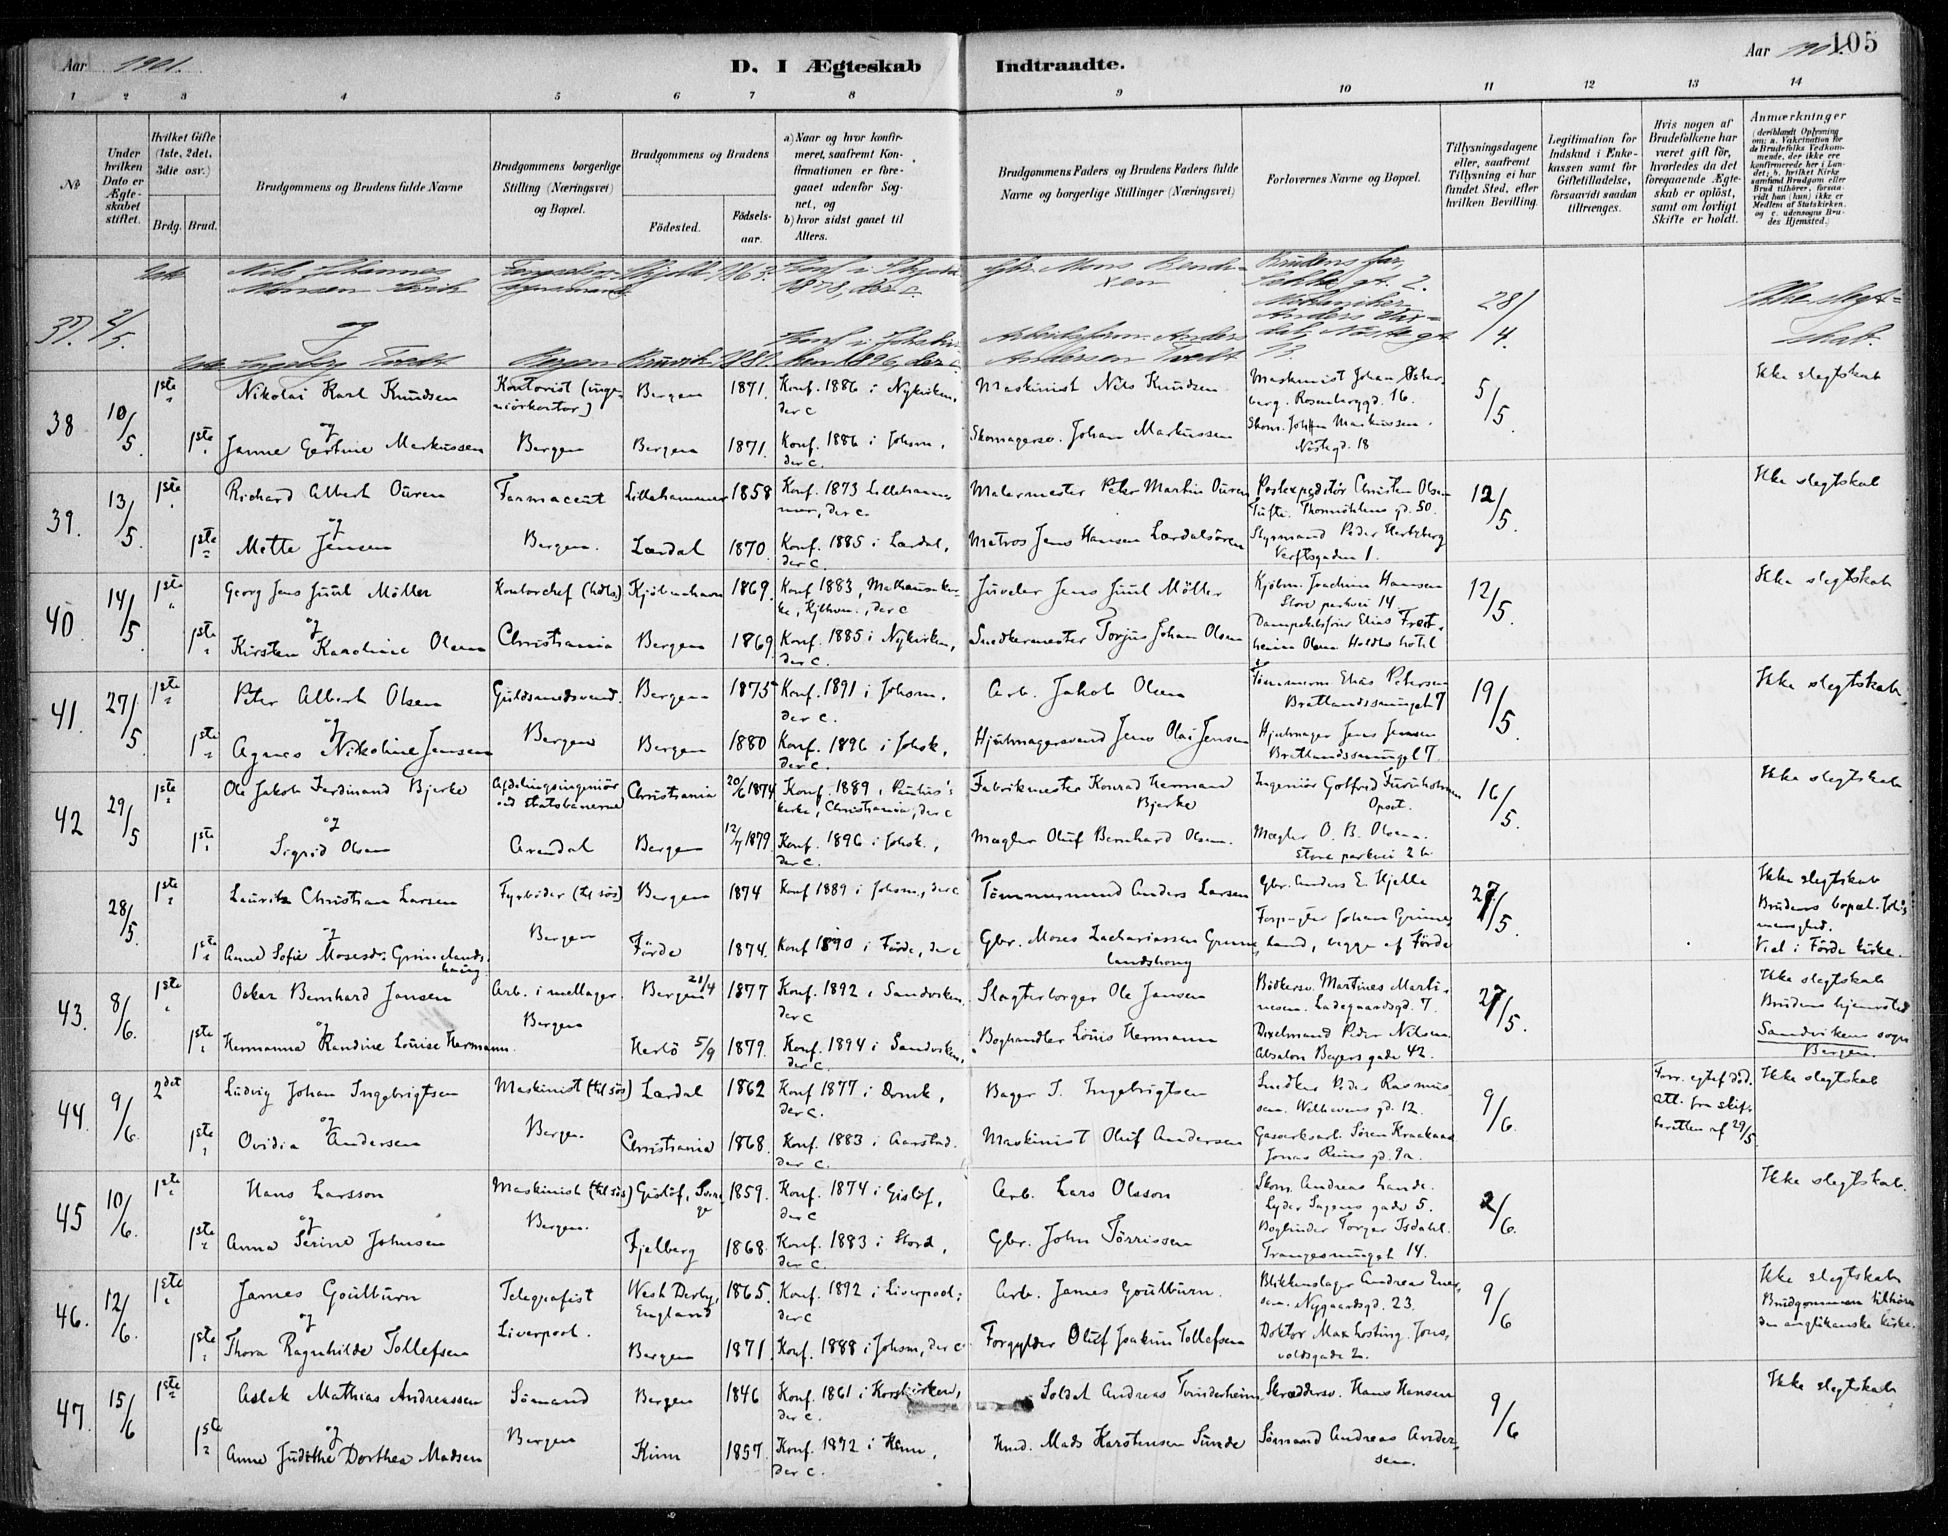 Aar 1901.
D. I Ægteskab Indtraadte.
Aar 1901.
105
1 2 3 4 5 6 7 8 9 10 11 12 13 14
№
Under hvilken Dato er Ægteskabet stiftet.
Hvilket Gifte (1ste, 2det, 3die osv.)
Brdg. Brud.
Brudgommens og Brudens fulde Navne
Brudgommens borgerlige Stilling (Næringsvei) og Bopæl.
Brudgommens og Brudens
Fødested.
Fødselsaar.
a) Naar og hvor konfirmeret, saafremt Konfirmationen er foregaaet udenfor Sognet, og
b) hvor sidst gaaet til Alters.
Brudgommens Faders og Brudens Faders fulde Navne og borgerlige Stillinger (Næringsvei)
Forlovernes Navne og Bopæl.
Tillysningsdagene eller, saafremt Tillysning ei har fundet Sted, efter hvilken Bevilling.
Legitimation for Indskud i Enkekassen samt for Giftetilladelse, forsaavidt saadan tiltrænges.
Hvis nogen af Brudefolkene har været gift før, hvorledes da det foregaaende Ægteskab er opløst, samt om lovligt Skifte er holdt.
Anmærkninger
(deriblandt Oplysning om: a. Vakcination for de Brudefolks Vedkommende, der ikke ere konfirmerede her i Landet; b. hvilket Kirkesamfund Brudgom eller Brud tilhører, forsaavidt han (hun) ikke er Medlem af Statskirken, og c. udensogns Brudes Hjemsted.)
37. 2/5. 1ste Nils Johannes Monsen
1863. Konf. i
1878, der c.
Gbr. Mons
Brudens far,
28/4.
Ikke slegtskab.
og
1ste Ingeborg Tvedt Bergen Bruvik 1880.
kon 1896, der c.
Arbeidsform. Anders Andersen Tvedt
38 10/5. 1ste Nikolai Karl Knudsen Kontorist (ingeniörkontor) Bergen 1871. Konf. 1886 i Nykirken, der c Maskinist Nils Knudsen Maskinist Johan Osterberg. Rosenberggd. 16. 5/5 Ikke slegtskab
og
1ste Janne Gertine Markussen Bergen Bergen 1871. Konf. 1886 i Johsm, der c. Skomagersv. Johan Markussen Skom. Johan Markussen. Nöstegd. 18
39. 13/5. 1ste Richard Albert Ouren Farmaceut Lillehammer 1858 Konf. 1873 Lillehammer, der c. Malermester Peter Martin Ouren Postexpeditör Christen Olsen Tufte. Thormöhlens gd. 50. 12/5. Ikke slegtskab
og
1ste Mette Jensen Bergen. Lærdal 1870. Konf. 1885 i Lærdal, der c. Matros Jens Hansen Lærdalsören Styrmand Peder Herteberg Verftsgaden 1.
40. 14/5 1ste Georg Jens Juul Möller Kontorchef (hdls) Kjöbenhavn 1869. Konf. 1883, Mathæuskirke, Kjöbhvn., der c Juveler Jens Juul Möller Kjöbm. Joachim Hansen Store parkvei 14 12/5. Ikke slegtskab
og
1ste Kirsten Karoline Olsen Christiania Bergen 1869. Konf. 1885 i Nykirken, der c. Snedkermester Torjus Johan Olsen Dampskibsförer Elias Olsen Holdts hotel
41. 27/5. 1ste Peter Albert Olsen Guldsmedsvend. Bergen 1875 Konf. 1891 i Johsm, der c. Arb. Jakob Olsen Tömmerm. Elias Petersen Bratlandssmuget 7 19/5. Ikke slegtskab
og
1ste Agnes Nikoline Jensen Bergen Bergen 1880 Konf. 1896 i Johsk, der c. Hjulmagersvend Jens Olai Jensen Hjulmager Jens Jensen Bratlandssmuget 7.
42 29/5 1ste Ole Jakob Ferdinand Bjerke Afdelingsingeniör ved statsbanerne Christiania 20/6 1874 Konf. 1889 i Paulus's kirke, Christiania, der c Fabrikmester Konrad Herman Bjerke Ingeniör Gotfred Furuholmen Opset. 16/5. Ikke slegtskab
og
1ste Sigrid Olsen Arendal Bergen 12/7 1879. Konf. 1896 i Johsk., der c. Mægler Oluf Bernhard Olsen. Mægler O. B. Olsen. Store parkvei 2 b.
28/5. 1ste Lauritz Christian Larsen Fyrböder (til sös) Bergen 1874 Konf 1889 i Johsm., der c Tömmermand Anders Larsen Gbr. Anders E. Hjelle 27/5. Ikke slegtskab
og
1ste Anne Sofie Mosesdr. Grimelandshaug Bergen Förde 1874. Konf 1890 i Förde, der c Gbr. Moses Zachariassen Grimelandshaug Forpagter Johan Grimeland, begge af Förde Brudens bopæl. Johsmenighed. Viet i Förde kirke.
43. 8/6. 1ste Oskar Bernhard Jansen Arb. i mellager. Bergen 21/4 1877 Konf. 1892 i Sandviken, der c Slagterborger Ole Jansen Bödkersv. Martines Martinesen. Ladegaardsgd. 7. 27/5. Ikke slegtskab
og
1ste Hermanna Randine Louise Hermann. Bergen Herlö 5/9 1879. Konf. 1894 i Sandviken, der c. Boghandler Louis Hermann Dixelmand Peder Nilsen Absalon Beyers gade 42. Brudens hjemsted Sandvikens sogn Bergen.
44. 9/6. 2det Ludvig Johan Ingebrigtsen Maskinist (til sös) Lærdal 1862 Konf 1877 i Domk, der c. Bager J. Ingebrigtsen Snedker Peder Rasmussen. Welhavens gd. 12. 9/6. Forr. egtef. död. att. fra skifteretten af 29/5. Ikke slegtskab
og
1ste Ovidia Andersen Bergen. Christiania 1868. Konf. 1883 i Aarstad. der c. Maskinist Oluf Andersen Gasverksarb. Sören Jonas Reins gd. 9a.
45 10/6. 1ste Hans Larsson Maskinist (til sös) Gislöf, Sverige 1859. Konf. 1874 i Gislöf, der c Arb. Lars Olsson Skom. Andreas Lande. Lyder Sagens gade 5. 2/6. Ikke slegtskab.
og
1ste Anna Serine Johnsen Bergen. Fjelberg 1868. Konf. 1883 i Stord, der c. Gbr. John Törrissen Bogbinder Torger Isdahl. Trangesmuget 14.
46. 12/6. 1ste James Goulburn Telegrafist West Derby, England 1865. Konf. 1892 i Liverpool; der c Arb. James Goulburn. Blikkenslager Andreas Enersen. Nygaardsgd. 23. 9/6 Ikke slegtskab Brudgommen tilhörer den anglikanske kirke.
og
1ste Thora Ragnhilde Tollefsen Liverpool. Bergen 1871. Konf. 1888 i Johsm, der c. Forgylder Oluf Joakim Tollefsen Doktor Max Josting. Jonsvoldsgade 2.
47. 15/6 1ste Aslak Mathias Andreassen Sömand Bergen 1846 Konf. 1861 i Korskirken, der c. Soldat Andreas Tvinderheim Skræddersv. Hans Hansen 9/6 Ikke slegtskab
og
1ste Anne Judithe Dorthea Madsen Bergen Kinn 1857. Konf. 1872 i Kinn, der c. Hmd. Mads Karstensen Sunde Sömand Andreas Andersen.